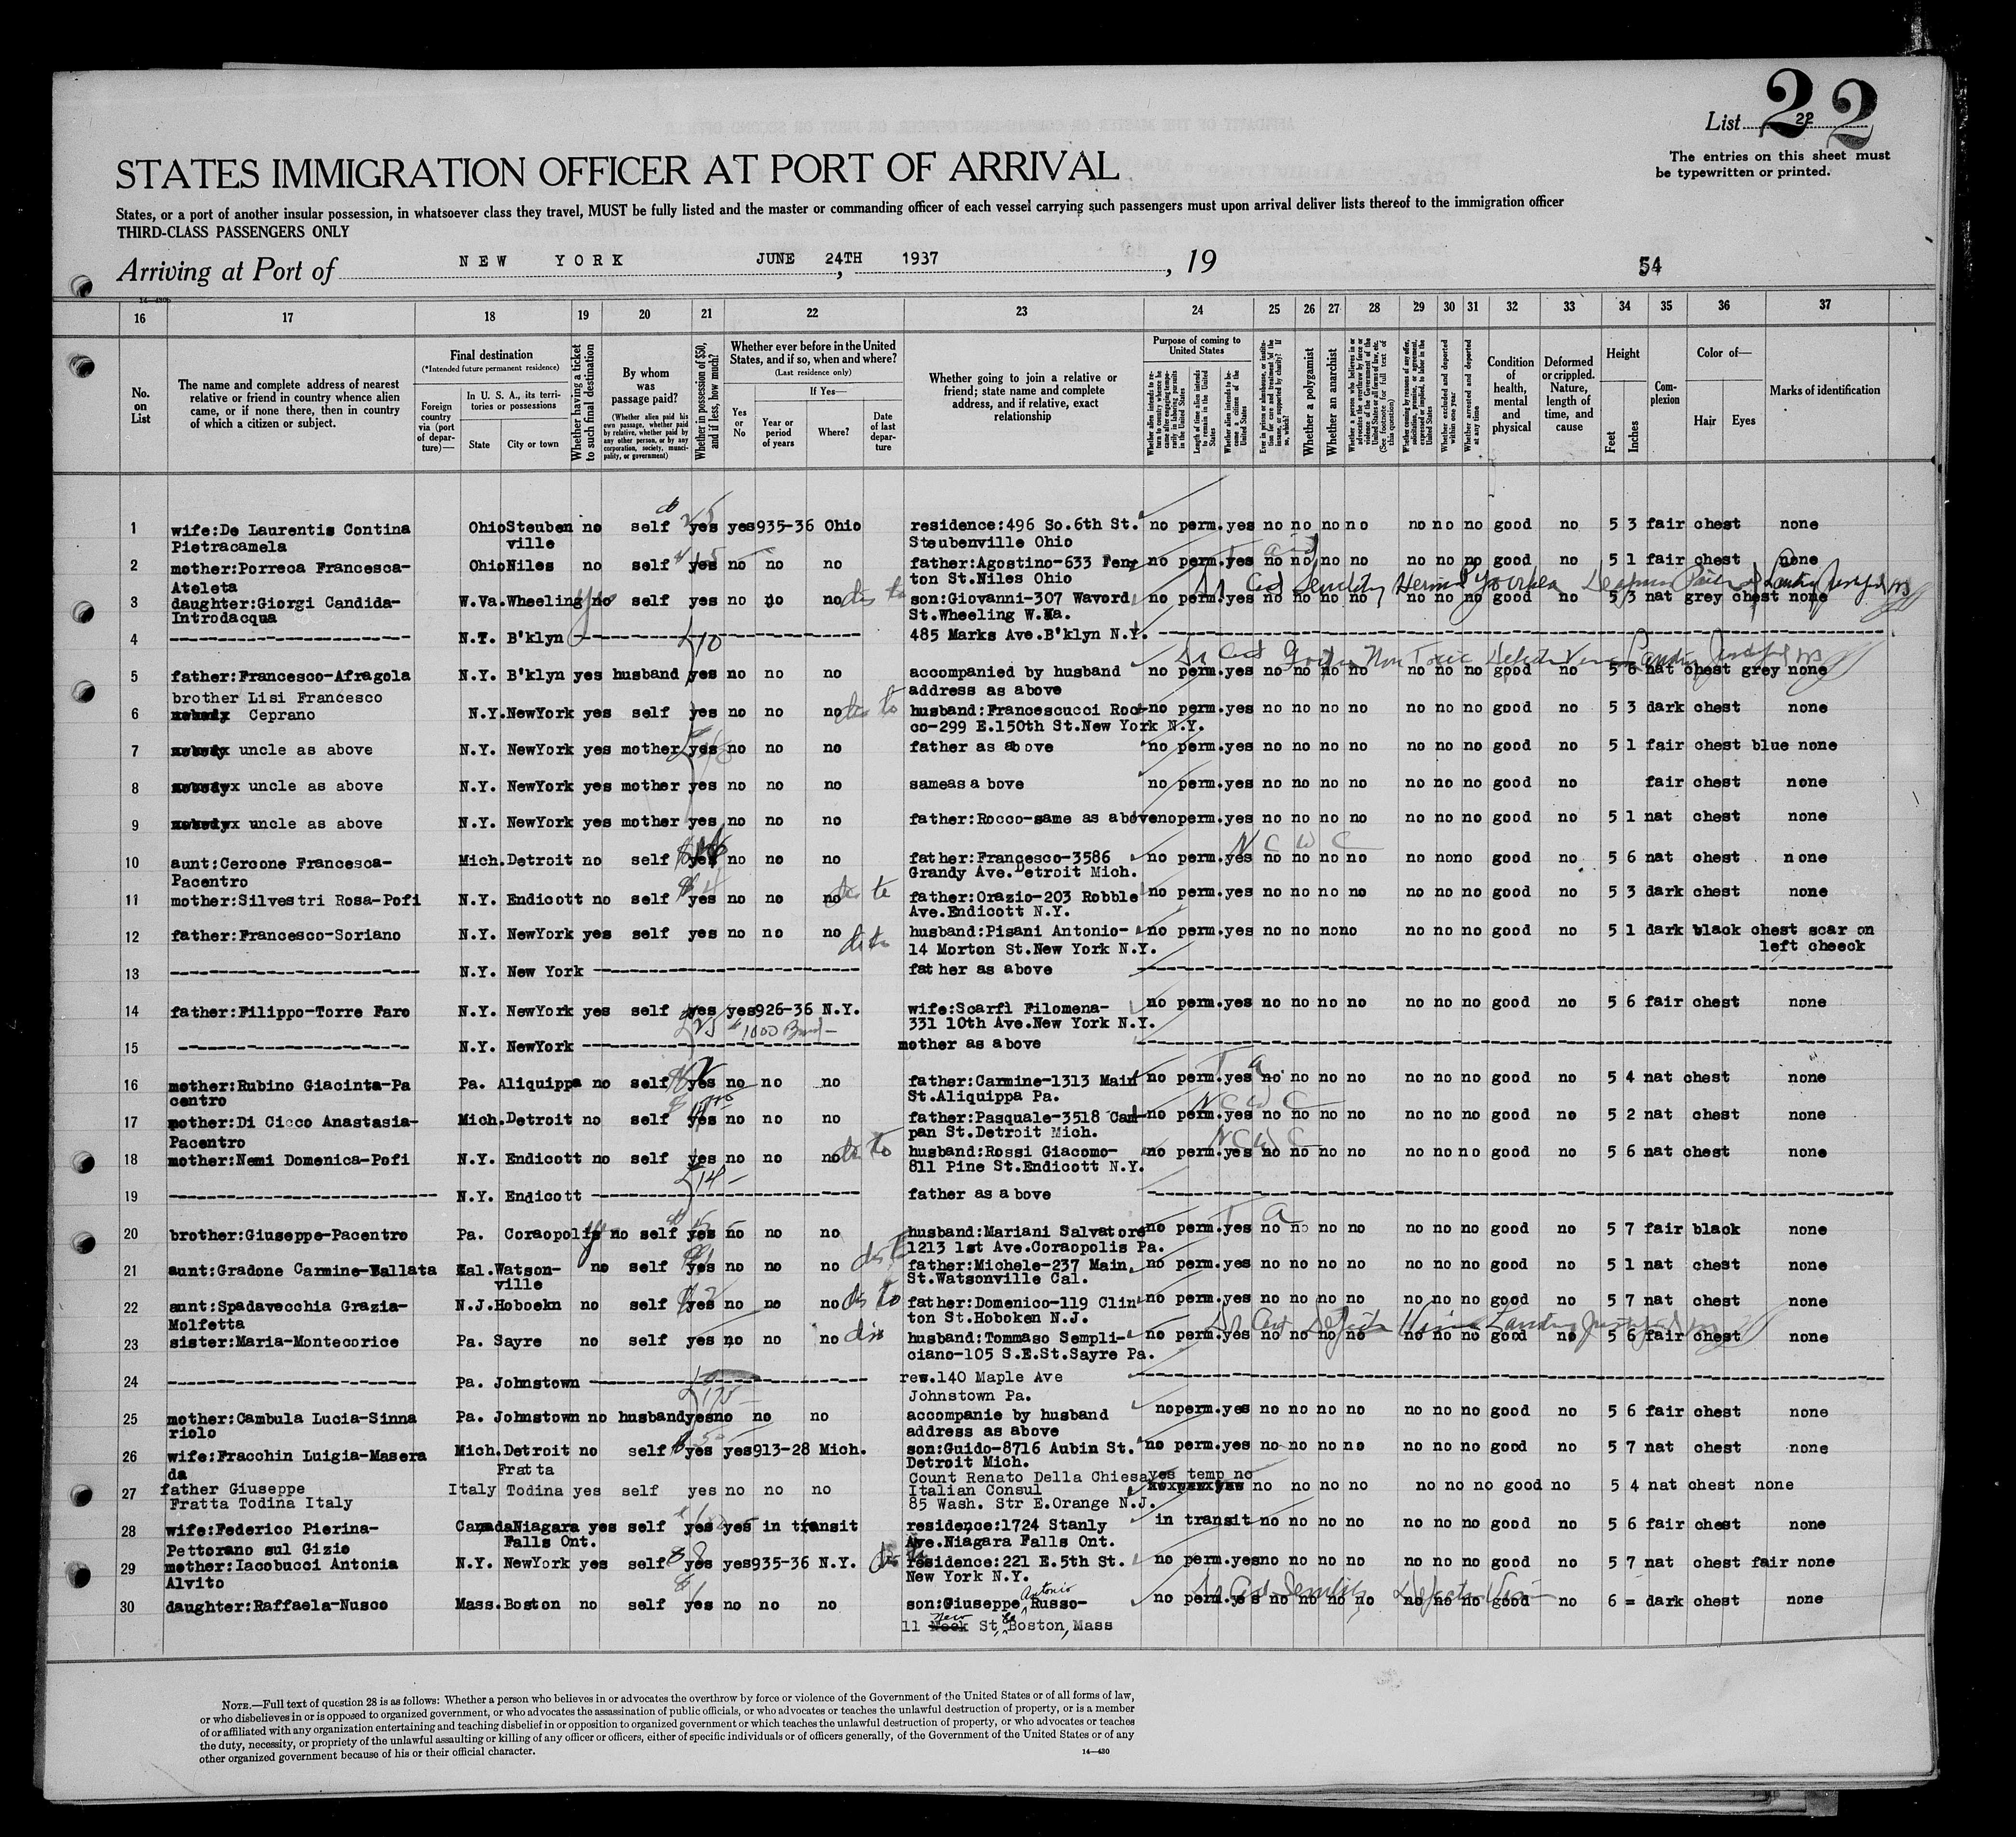 List 22
22
The entries on this sheet must
be typewritten or printed.
STATES IMMIGRATION OFFICER AT PORT OF ARRIVAL
States, or a port of another insular possession, in whatsoever class they travel, MUST be fully listed and the master or commanding officer of each vessel carrying such passengers must upon arrival deliver lists thereof to the immigration officer
THIRD-CLASS PASSENGERS ONLY
Arriving at Port of NEW YORK, JUNE 24TH 1937, 19
54
14—430b
16 17 18 19 20 21 22 23 24 25 26 27 28 29 30 31 32 33 34 35 36 37
No. on List
The name and complete address of nearest relative or friend in country whence alien came, or if none there, then in country of which a citizen or subject.
Final destination
(*Intended future permanent residence)
Foreign country via (port of departure)—
In U. S. A., its territories or possessions
State
City or town
Whether having a ticket to such final destination
By whom was passage paid?
(Whether alien paid his own passage, whether paid by relative, whether paid by any other person, or by any corporation, society, municipality, or government)
Whether in possession of $50, and if less, how much?
Whether ever before in the United States, and if so, when and where?
(Last residence only)
Yes or No
If Yes—
Year or period of years
Where?
Date of last departure
Whether going to join a relative or friend; state name and complete address, and if relative, exact relationship
Purpose of coming to United States
Whether alien intends to return to country whence he came after engaging temporarily in laboring pursuits in the United States
Length of time alien intends to remain in the United States
Whether alien intends to become a citizen of the United States
Ever in prison or almshouse, or institution for care and treatment of the insane, or supported by charity? If so, which?
Whether a polygamist
Whether an anarchist
Whether a person who believes in or advocates the overthrow by force or violence of the Government of the United States or all forms of law, etc. (See footnote for full text of this question)
Whether coming by reasons of any offer, solicitation, promise, or agreement, expressed or implied, to labor in the United States
Whether excluded and deported within one year
Whether arrested and deported at any time
Condition of health, mental and physical
Deformed or crippled. Nature, length of time, and cause
Height
Feet
Inches
Complexion
Color of—
Hair
Eyes
Marks of identification
1 wife:De Laurentis Contina Ohio Steuben no self yes yes 935-36 Ohio residence:496 So.6th St. no perm. yes no no no no no no no good no 5 3 fair chest none
Pietracamela ville Steubenville Ohio
2 mother:Porreca Francesca- Ohio Niles no self yes no no no father:Agostino-633 Fen no perm. yes no no no no no no no good no 5 1 fair chest none
Ateleta ton St.Niles Ohio
3 daughter:Giorgi Candida- W.Va. Wheeling no self yes no no no son:Giovanni-307 Wavord no perm. yes no no no no no no no good no 5 3 nat grey chest none
Introdacqua St.Wheeling W.Va.
4 N.Y. B'klyn 485 Marks Ave.B'klyn N.Y.
5 father:Francesco-Afragola N.Y. B'klyn yes husband yes no no no accompanied by husband no perm. yes no no no no no no no good no 5 6 nat chest grey none
address as above
brother Lisi Francesco
6 Ceprano N.Y. NewYork yes self yes no no no husband:Francescucci Roc- no perm. yes no no no no no no no good no 5 3 dark chest none
co-299 E.150th St.New York N.Y.
7 uncle as above N.Y. NewYork yes mother yes no no no father as above no perm. yes no no no no no no no good no 5 1 fair chest blue none
8 uncle as above N.Y. NewYork yes mother yes no no no sameas a bove no perm. yes no no no no no no no good no fair chest none
9 uncle as above N.Y. NewYork yes mother yes no no no father:Rocco-same as above no perm. yes no no no no no no no good no 5 1 nat chest none
N C W C
10 aunt:Cercone Francesca- Mich. Detroit no self yes no no no father:Francesco-3586 no perm. yes no no no no no no no good no 5 6 nat chest none
Pacentro Grandy Ave.Detroit Mich.
11 mother:Silvestri Rosa-Pofi N.Y. Endicott no self yes no no no father:Orazio-203 Robble no perm. yes no no no no no no no good no 5 3 dark chest none
Ave.Endicott N.Y.
12 father:Francesco-Soriano N.Y. NewYork yes self yes no no no husband:Pisani Antonio- no perm. yes no no no no no no no good no 5 1 dark black chest scar on
14 Morton St.New York N.Y. left cheeck
13 N.Y. New York father as above
14 father:Filippo-Torre Faro N.Y. NewYork yes self yes yes 926-36 N.Y. wife:Scarfi Filomena- no perm. yes no no no no no no no good no 5 6 fair chest none
331 10th Ave.New York N.Y.
15 N.Y. NewYork mother as above
16 mother:Rubino Giacinta-Pa Pa. Aliquippa no self yes no no no father:Carmine-1313 Main no perm. yes no no no no no no no good no 5 4 nat chest none
centro St.Aliquippa Pa.
N C W C
17 mother:Di Cicco Anastasia- Mich. Detroit no self yes no no no father:Pasquale-3518 Cam no perm. yes no no no no no no no good no 5 2 nat chest none
Pacentro pan St.Detroit Mich.
N C W C
18 mother:Nemi Domenica-Pofi N.Y. Endicott no self yes no no no husband:Rossi Giacomo- no perm. yes no no no no no no no good no 5 6 nat chest none
811 Pine St.Endicott N.Y.
19 N.Y. Endicott father as a bove
20 brother:Giuseppe-Pacentro Pa. Coraopolis no self yes no no no husband:Mariani Salvatore no perm. yes no no no no no no no good no 5 7 fair black none
1213 1st Ave.Coraopolis Pa.
21 aunt:Gradone Carmine-Vallata Cal. Watson- no self yes no no no father:Michele-237 Main no perm. yes no no no no no no no good no 5 1 nat chest none
ville St.Watsonville Cal.
22 aunt:Spadavecchia Grazia- N.J. Hoboekn no self yes no no no father:Domenico-119 Clin no perm. yes no no no no no no no good no 5 7 nat chest none
Molfetta ton St.Hoboken N.J.
23 sister:Maria-Montecorice Pa. Sayre no self yes no no no husband:Tommaso Sempli- no perm. yes no no no no no no no good no 5 6 fair chest none
ciano-105 S.E.St.Sayre Pa.
24 Pa. Johnstown res.140 Maple Ave
Johnstown Pa.
25 mother:Cambula Lucia-Sinna Pa. Johnstown no husband yes no no no accompanie by husband no perm. yes no no no no no no no good no 5 6 fair chest none
riolo address as above
26 wife:Fracchin Luigia-Masera Mich. Detroit no self yes yes 913-28 Mich. son:Guido-8716 Aubin St. no perm. yes no no no no no no no good no 5 7 nat chest none
da Detroit Mich.
Fratta Count Renato Della Chiesa yes temp no
27 father Giuseppe Italy Todina yes self yes no no no Italian Consul no no no no no no no good no 5 4 nat chest none
Fratta Todina Italy 85 Wash. Str E.Orange N.J.
28 wife:Federico Pierina- Canada Niagara yes self yes yes in transit residence:1724 Stanly in transit no no no no no no no good no 5 6 fair chest none
Pettorano sul Gizio Falls Ont. Ave.Niagara Falls Ont.
29 mother:Iacobucci Antonia N.Y. NewYork yes self yes yes 935-36 N.Y. residence:221 E.5th St. no perm. yes no no no no no no no good no 5 7 nat chest fair none
Alvito New York N.Y.
30 daughter:Raffaela-Nusco Mass. Boston no self yes no no no son:Giuseppe Antonio Russo- no perm. yes no no no no no no no good no 6 = dark chest none
11 New St, Boston, Mass
NOTE.—Full text of question 28 is as follows: Whether a person who believes in or advocates the overthrow by force or violence of the Government of the United States or of all forms of law,
or who disbelieves in or is opposed to organized government, or who advocates the assassination of public officials, or who advocates or teaches the unlawful destruction of property, or is a member
of or affiliated with any organization entertaining and teaching disbelief in or opposition to organized government or which teaches the unlawful destruction of property, or who advocates or teaches
the duty, necessity, or propriety of the unlawful assaulting or killing of any officer or officers, either of specific individuals or of officers generally, of the Government of the United States or of any
other organized government because of his or their official character.
14—430